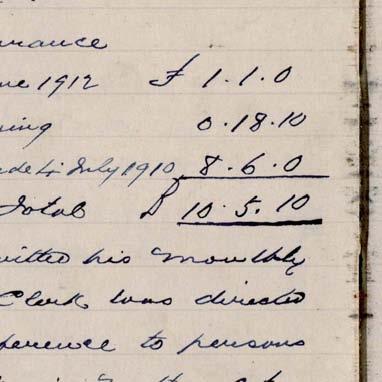 urance
une 1912 £ 1.1.0
ning 0.18.10
ade 4 July 1910 8.6.0
Total £ 10.5.10
mitted his monthly
Clerk was directed
ference to persons